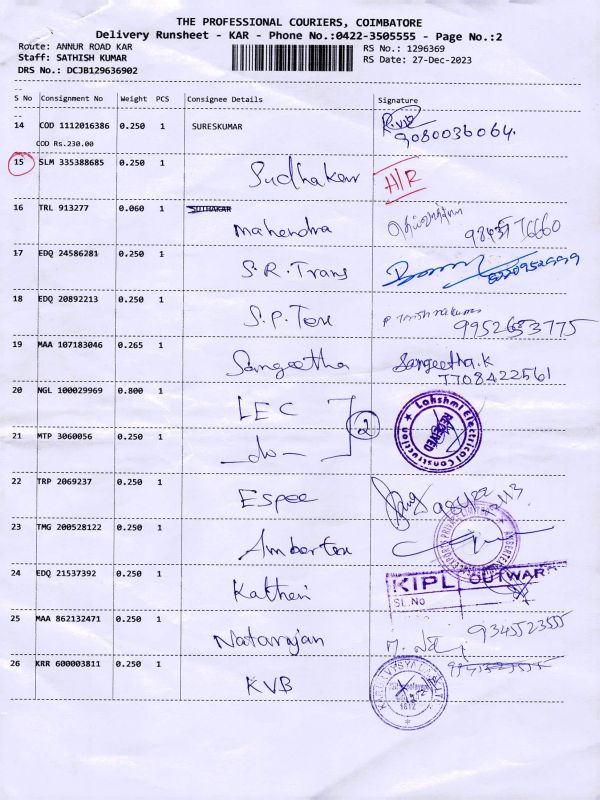 THE PROFESSIONAL COURIERS, COIMBATORE
Delivery Runsheet - KAR - Phone No.:0422-3505555 - Page No.:2
Route: ANNUR ROAD KAR
RS No.: 1296369
Staff: SATHISH KUMAR
RS Date: 27-Dec-2023
DRS No.: DCJB129636902
S No Consignment No Weight PCS Consignee Details Signature
14 COD 1112016386 0.250 1 SURESKUMAR
9080036064.
COD Rs.230.00
15 SLM 335388685 0.250 1 Sudhakar H/R
16 TRL 913277 0.060 1 SUTHAKAR
Mahendra
17 EDQ 24586281 0.250 1 S.R. Trans
18 EDQ 20892213 0.250 1 S.P. Tex 9952653775
19 MAA 107183046 0.265 1 Sangeetha Sangeetha.K
7708422561
20 NGL 100029969 0.800 1 LEC 2
Lakshmi Electrical Construction
RECEIVED
21 MTP 3060056 0.250 1 - do -
22 TRP 2069237 0.250 1 Espee
23 TMG 200528122 0.250 1 Amberten
24 EDQ 21537392 0.250 1 Katheri
KIPL OUTWARD
SL.No
25 MAA 862132471 0.250 1 Natarajan 9345523555
26 KRR 600003811 0.250 1 KVB